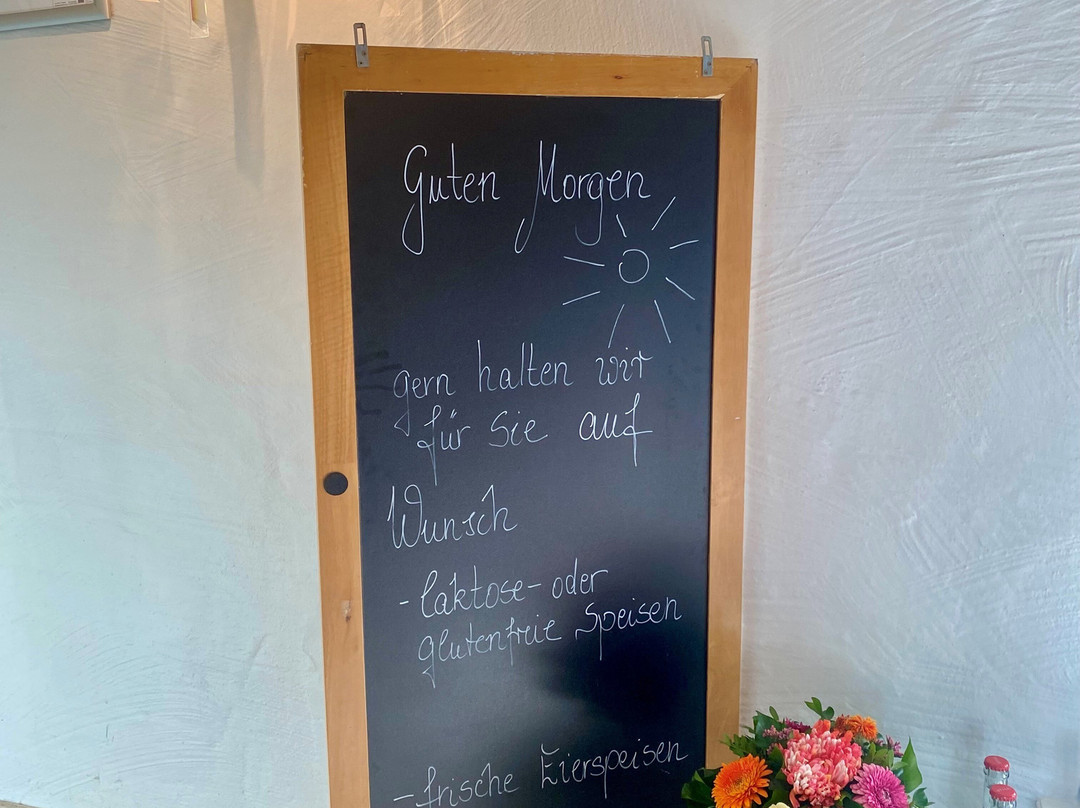 Guten Morgen
gern halten wir
für Sie auf
Wunsch
- laktose- oder
glutenfreie Speisen
- frische Eierspeisen